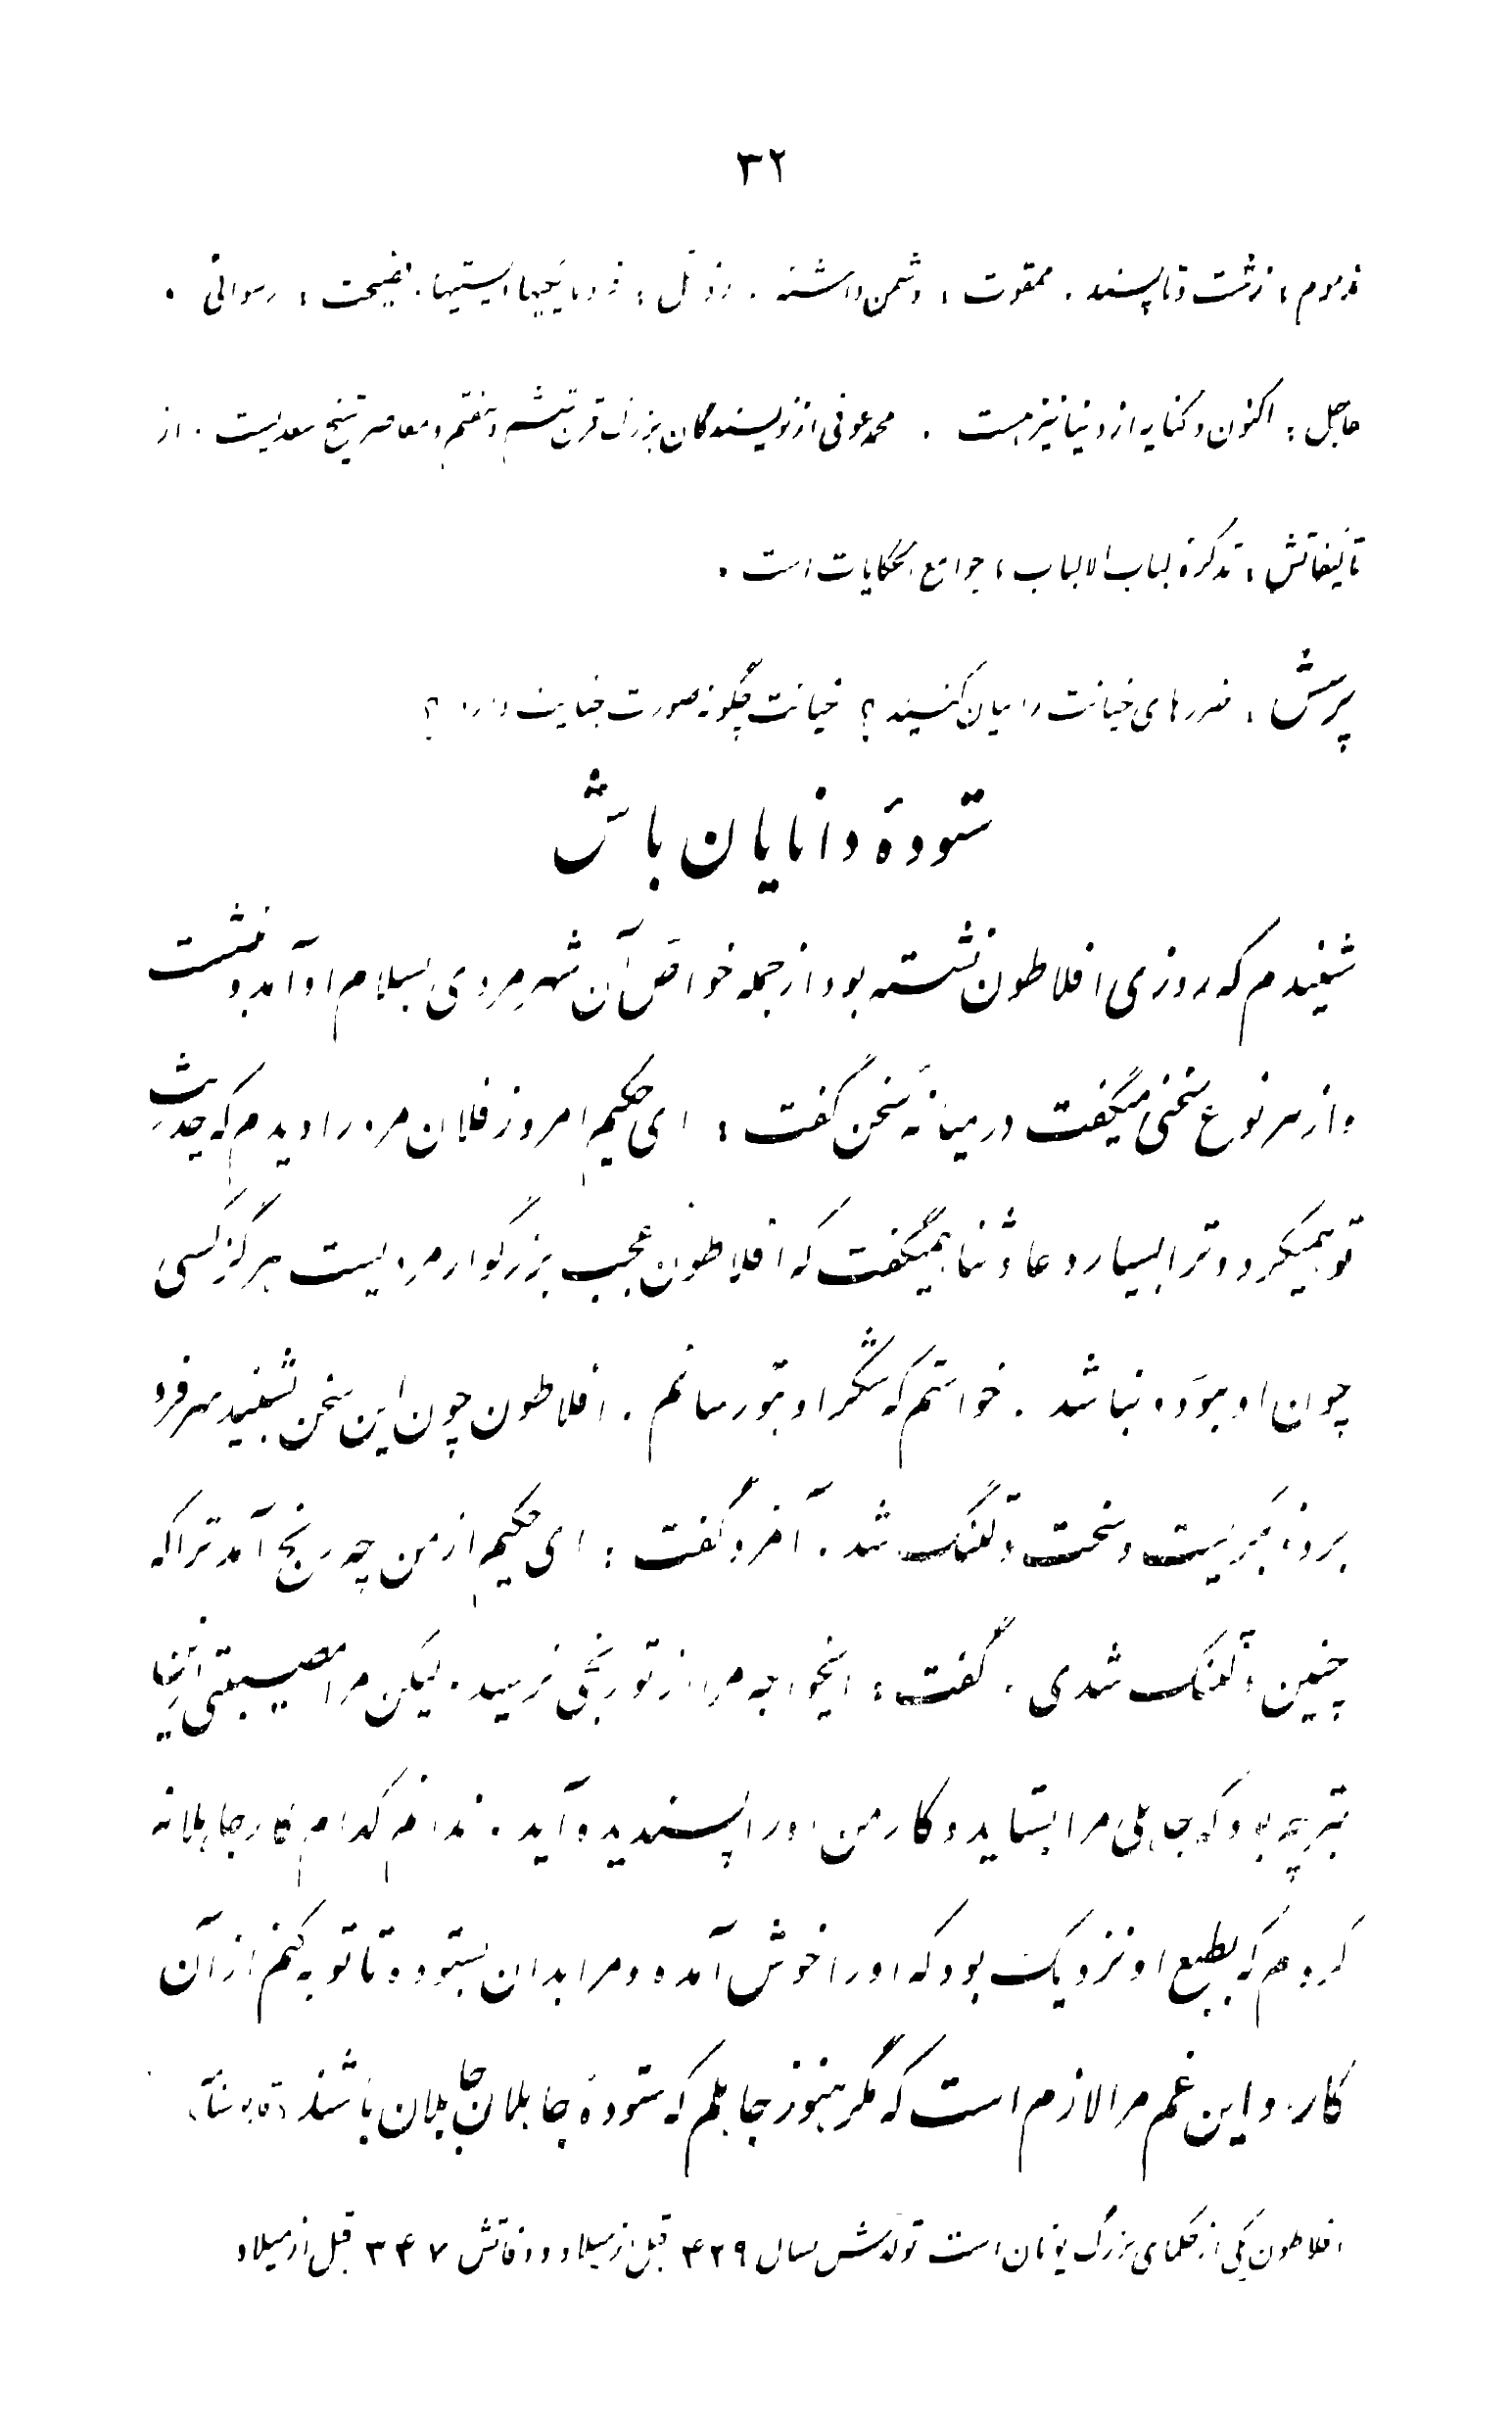 ۳۲
مذموم : زشت و ناپسند . ممقوت : دشمن داشته . رذائل : فرومایگیها، پستیها . فضیحت : رسوائی .
عاجل : اکنون و کنایه از دنیا نیز هست . محمد عوفی از نویسندگان بزرگ قرن ششم و هفتم و معاصر شیخ سعدیست . از
تألیفاتش : تذکرهٔ لباب الالباب ، جوامع الحکایات است .
پرسش : ضررهای خیانت را بیان کنید ؟ خیانت چگونه صورت جنایت دارد ؟
ستودهٔ دانایان باش
شنیدم که روزی افلاطون نشسته بود از جمله خواص آن شهر مردی بسلام او آمد و نشست
و از هر نوع سخنی میگفت در میانهٔ سخن گفت : ای حکیم امروز فلان مرد را دیدم که حدیث
تو همیکرد و ترا بسیار دعا و ثنا همیگفت که افلاطون عجب بزرگوار مردیست هرگز کسی
چون او نبوده و نباشد . خواستم که شکر او بتو رسانم . افلاطون چون این سخن بشنید سر فرو
برد و بگریست و سخت دلتنگ شد . آنمرد گفت : ای حکیم از من چه رنج آمد ترا که
چنین دلتنگ شدی . گفت : ایخواجه مرا از تو رنجی نرسید . لیکن مرا مصیبتی ازین
بتر چه بود که جاهلی مرا بستاید و کار من او را پسندیده آید . ندانم کدام کار جاهلانه
کردم که بطبع او نزدیک بود که او را خوش آمده و مرا بدان بستوده تا توبه کنم از آن
کار . و این غم مرا لازم است که مگر هنوز جاهلم که ستودهٔ جاهلان جاهلان باشند
افلاطون یکی از حکمای بزرگ یونان است تولدش بسال ۴۲۹ قبل از میلاد و وفاتش ۳۴۷ قبل از میلاد